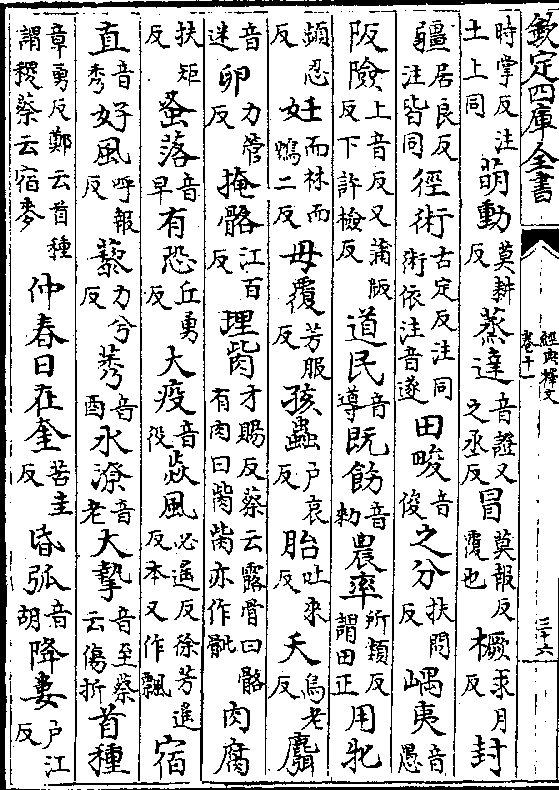 欽定四庫全書
經典釋文
卷十一
三十六
時掌反注土上同萌動莫耕反蒸達音證又之丞反冒莫報反覆也橛求月反封
疆居良反注皆同徑術古定反注同術依注音遂田畯音俊之分扶問反嵎夷音愚
阪險上音反又蒲版反下許檢反道民音導既飭音勑農率所類反謂田正用牝
頻忍反妊而林而鴆二反毋覆芳服反孩蟲户哀反胎吐來反夭烏老反麛
音迷卵力管反掩骼江百反埋胔才賜反蔡云露骨曰骼有肉曰胔胔亦作骴肉腐
扶矩反蚤落音早有恐丘勇反大疫音役焱風必遥反徐芳遥反本又作飄宿
直音秀好風呼報反藜力兮反莠音酉水潦音老大摯音至蔡云傷折首種
章勇反鄭云首種謂稷蔡云宿麥仲春日在奎苦圭反昏弧音胡降婁户江反